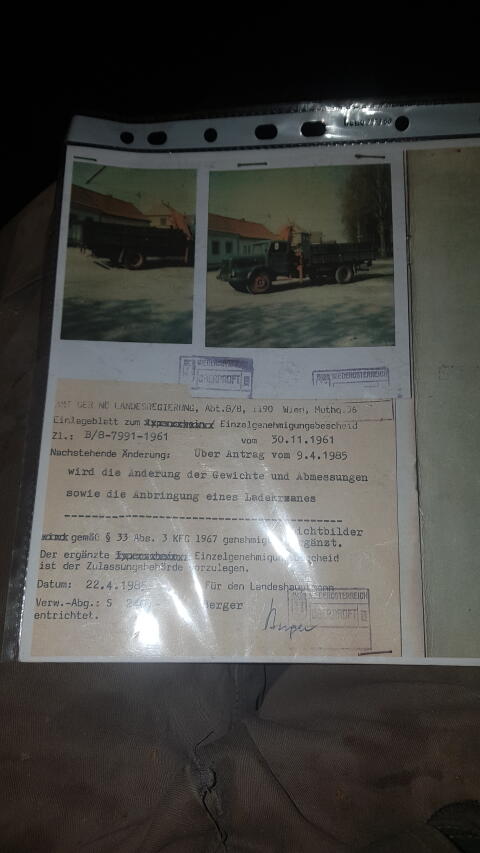 NIEDERÖSTERREICH
ÜBERPRÜFT
NIEDERÖSTERREICH
AMT DER NÖ LANDESREGIERUNG, Abt.B/8, 1190 Wien, Muthg.
Einlageblatt zum Einzelgenehmigungsbescheid
Zl.: B/8-7991-1961 vom 30.11.1961
Nachstehende Änderung: Über Antrag vom 9.4.1985
wird die Änderung der Gewichte und Abmessungen
sowie die Anbringung eines Ladekranes
ichtbilder
wird gemäß § 33 Abs. 3 KFG 1967 genehmig rgänzt.
Der ergänzte Einzelgenehmigungsbescheid
ist der Zulassungsbehörde vorzulegen.
Datum: 22.4.1985 Für den Landeshauptmann
Verw.-Abg.: S Berger
entrichtet.
NIEDERÖSTERREICH
ÜBERPRÜFT